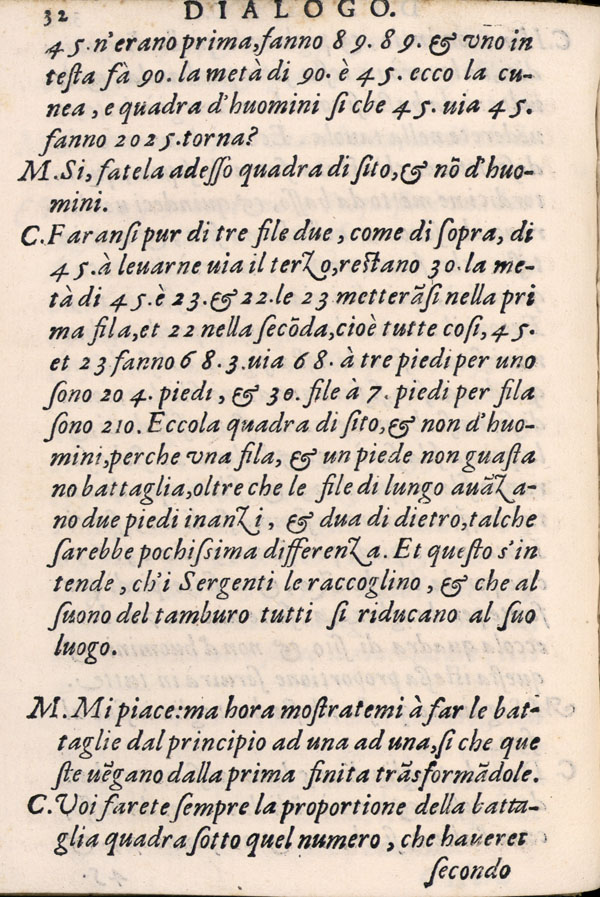 32 DIALOGO.
45. n'erano prima, fanno 89. 89. & vno in
testa fà 90. la metà di 90. è 45. ecco la cu-
nea, e quadra d'huomini si che 45. uia 45.
fanno 2025. torna?
M. Si, fatela adesso quadra di sito, & nõ d'huo-
mini.
C. Faransi pur di tre file due, come di sopra, di
45. à leuarne uia il terzo, restano 30. la me-
tà di 45. è 23. & 22. le 23 metterãsi nella pri
ma fila, et 22 nella secõda, cioè tutte cosi, 45.
et 23 fanno 68. 3. uia 68. à tre piedi per uno
sono 204. piedi, & 30. file à 7. piedi per fila
sono 210. Eccola quadra di sito, & non d'huo-
mini, perche vna fila, & un piede non guasta
no battaglia, oltre che le file di lungo auãza-
no due piedi inanzi, & dua di dietro, talche
sarebbe pochissima differenza. Et questo s'in
tende, ch'i Sergenti le raccoglino, & che al
suono del tamburo tutti si riducano al suo
luogo.
M. Mi piace: ma hora mostratemi à far le bat-
taglie dal principio ad una ad una, si che que
ste uẽgano dalla prima finita trãsformãdole.
C. Voi farete sempre la proportione della batta-
glia quadra sotto quel numero, che haueret
secondo